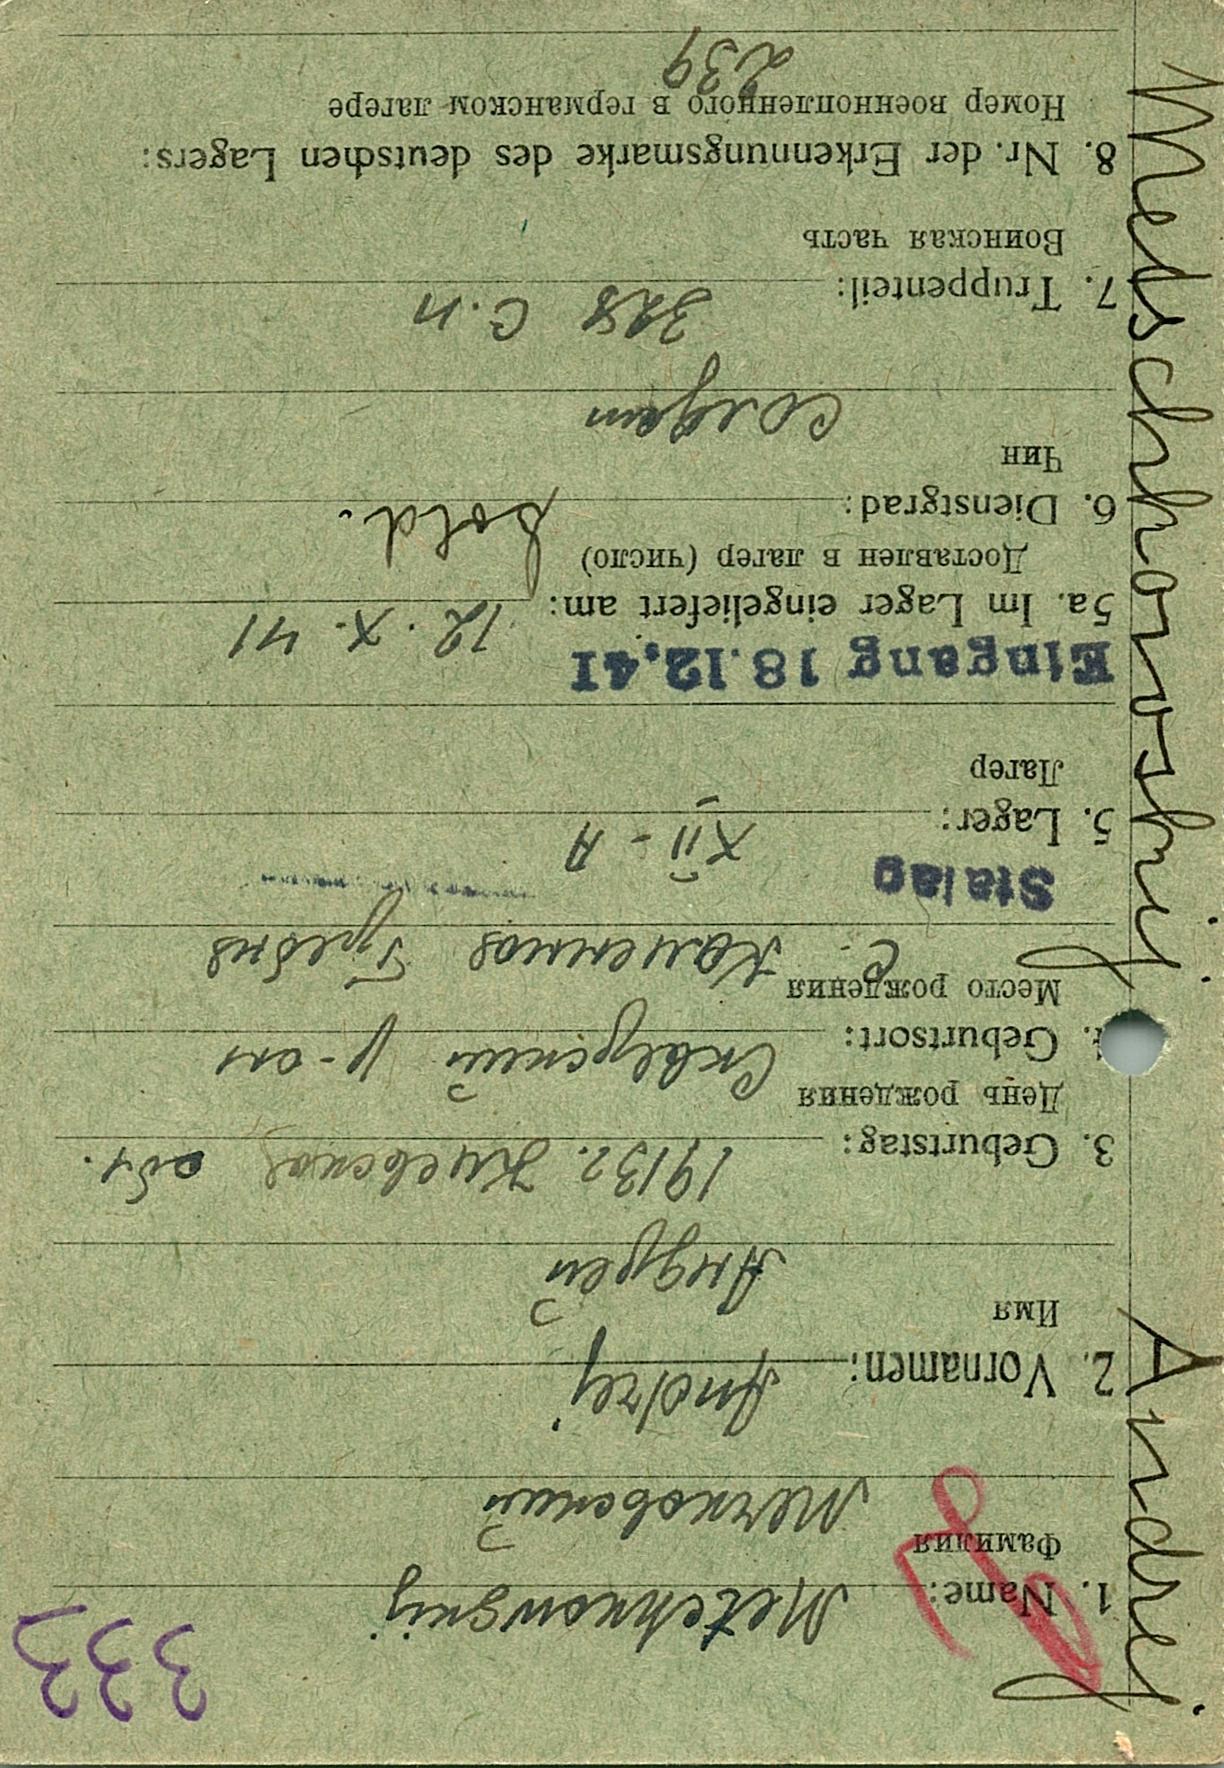 333
1. Name: Metchnowskij
Фамилия
Мечновский
2. Vornamen: Andrej
Имя
Андрей
3. Geburtstag: 1913г. Киевская обл.
День рождения
4. Geburtsort: Сквирский р-он
Место рождения
с. Каменная Гребля
Stalag
5. Lager: XII-A
Лагерь
Eingang 18.12.41
5a. Im Lager eingeliefert am: 12. X. 41
Доставлен в лагерь (число)
6. Dienstgrad: Sold.
Чин
солдат
7. Truppenteil: 328 С.П
Воинская часть
8. Nr. der Erkennungsmarke des deutschen Lagers:
Номер военнопленного в германском лагере
239
Metschnowskij Andrej